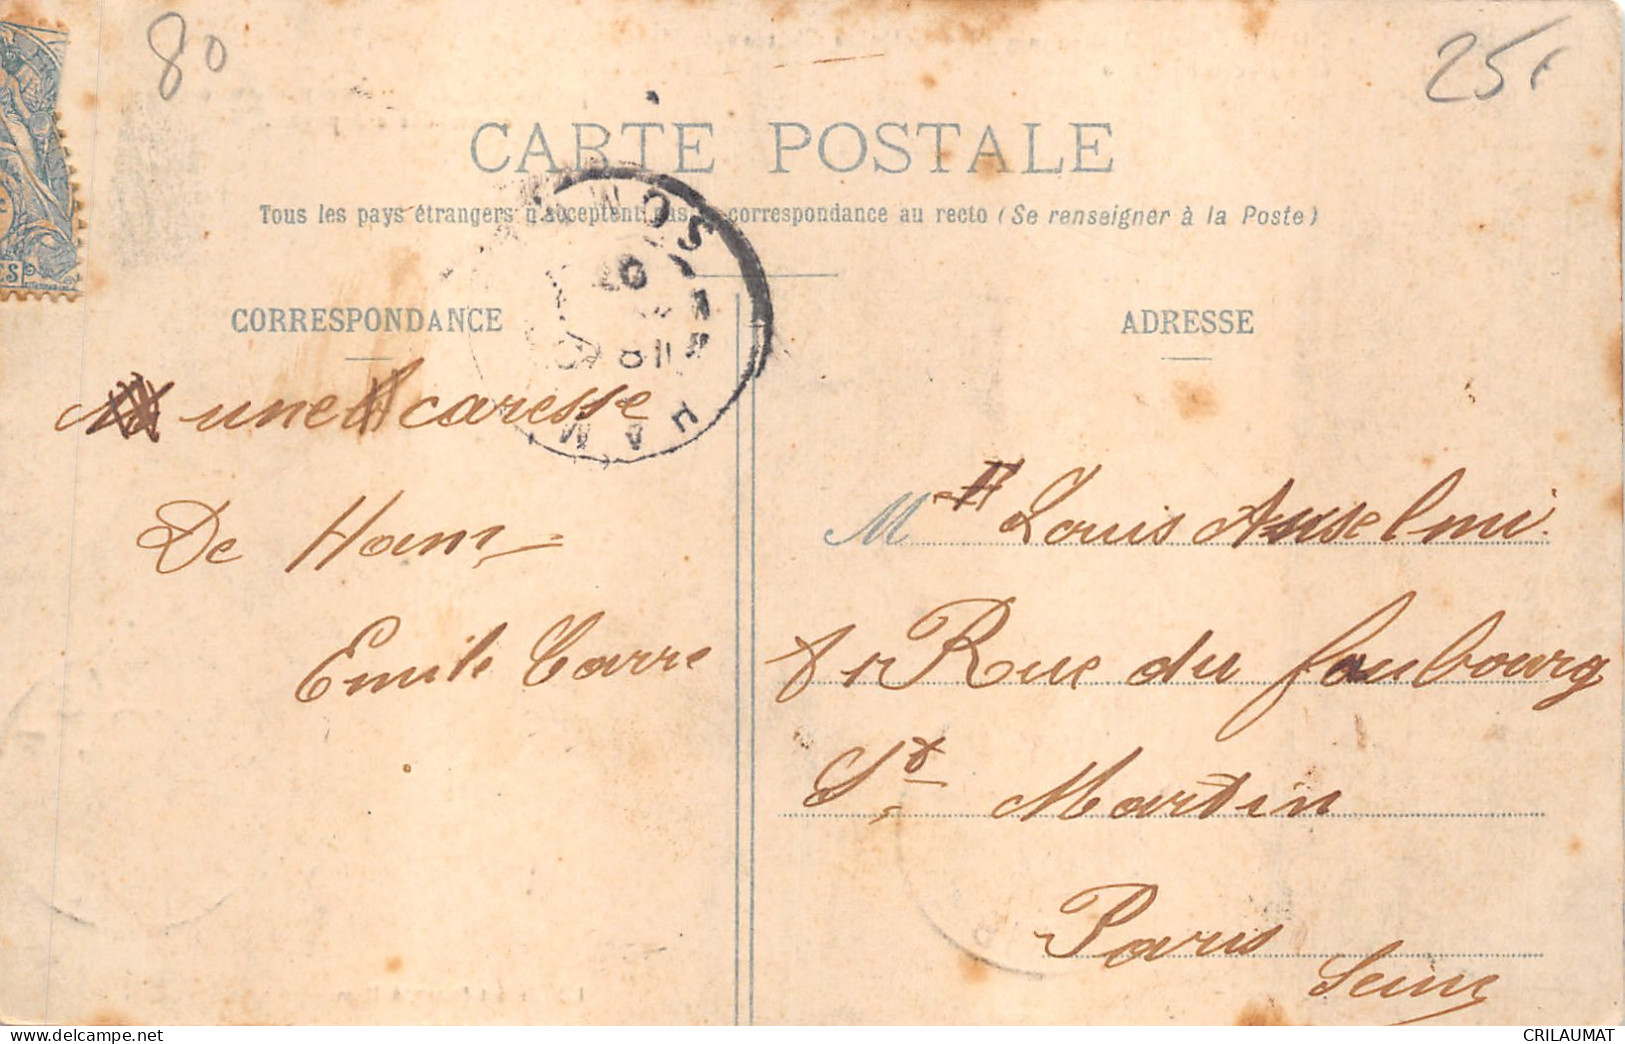 80
25€
CARTE POSTALE
Tous les pays étrangers n'acceptent pas la correspondance au recto (Se renseigner à la Poste)
CORRESPONDANCE
ADRESSE
HAM
SOMME
07
une caresse
De Ham
Emile Carre
M Louis Anselmi
Rue du faubourg
St Martin
Paris
Seine
CRILAUMAT